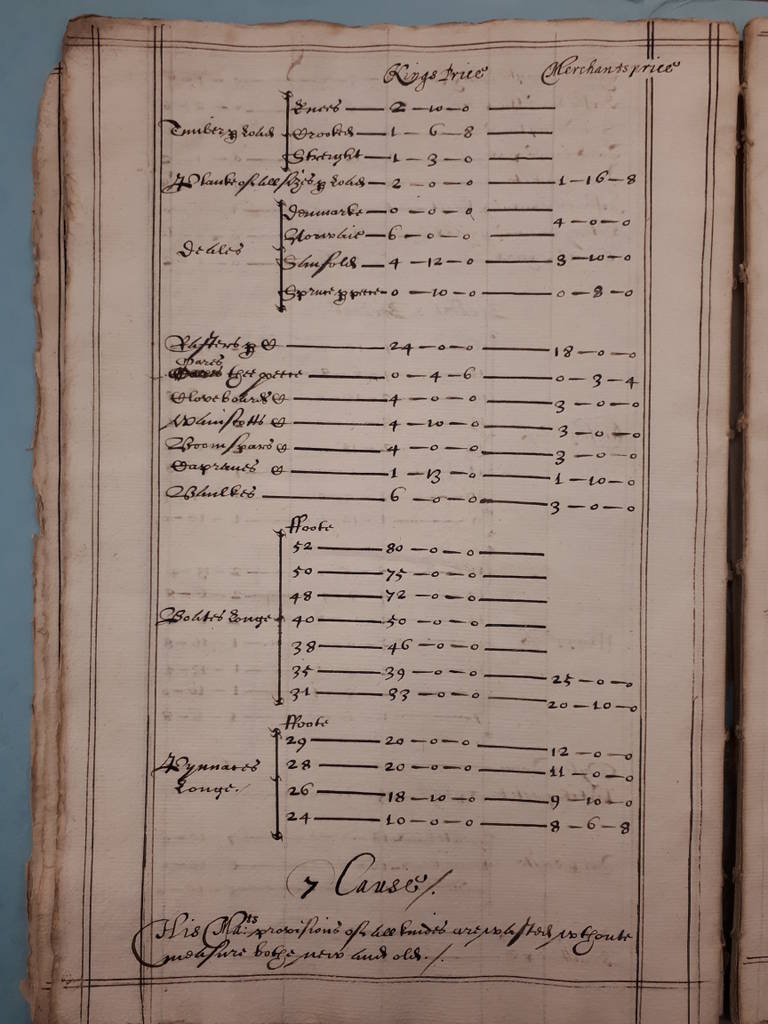 Kings Price Merchants price
Knees 2 - 10 - 0
Timber ꝑ load Crooked 1 - 6 - 8
Streight 1 - 3 - 0
Planke of all sizes ꝑ load 2 - 0 - 0 1 - 16 - 8
Denmarke 0 - 0 - 0
4 - 0 - 0
Norwaie 6 - 0 - 0
Deales
4 - 12 - 0 3 - 10 - 0
Spruce ꝑ peece 0 - 10 - 0 0 - 8 - 0
Rafters ꝑ C 24 - 0 - 0 18 - 0 - 0
Oares
the peece 0 - 4 - 6 0 - 3 - 4
Cloveboards C 4 - 0 - 0 3 - 0 - 0
Wainscotts C 4 - 10 - 0 3 - 0 - 0
Boomspars C 4 - 0 - 0 3 - 0 - 0
Capraues C 1 - 13 - 0 1 - 10 - 0
Baulkes 6 - 0 - 0 3 - 0 - 0
ffoote
52 80 - 0 - 0
50 75 - 0 - 0
48 72 - 0 - 0
Boates longe 40 50 - 0 - 0
38 46 - 0 - 0
35 39 - 0 - 0 25 - 0 - 0
31 33 - 0 - 0 20 - 10 - 0
ffoote
29 20 - 0 - 0 12 - 0 - 0
Pynnaces 28 20 - 0 - 0 11 - 0 - 0
longe./ 26 18 - 10 - 0 9 - 10 - 0
24 10 - 0 - 0 8 - 6 - 8
7 Cause/.
His Ma:ts provisions of all kindes are wasted wthoute
measure bothe new and old./.